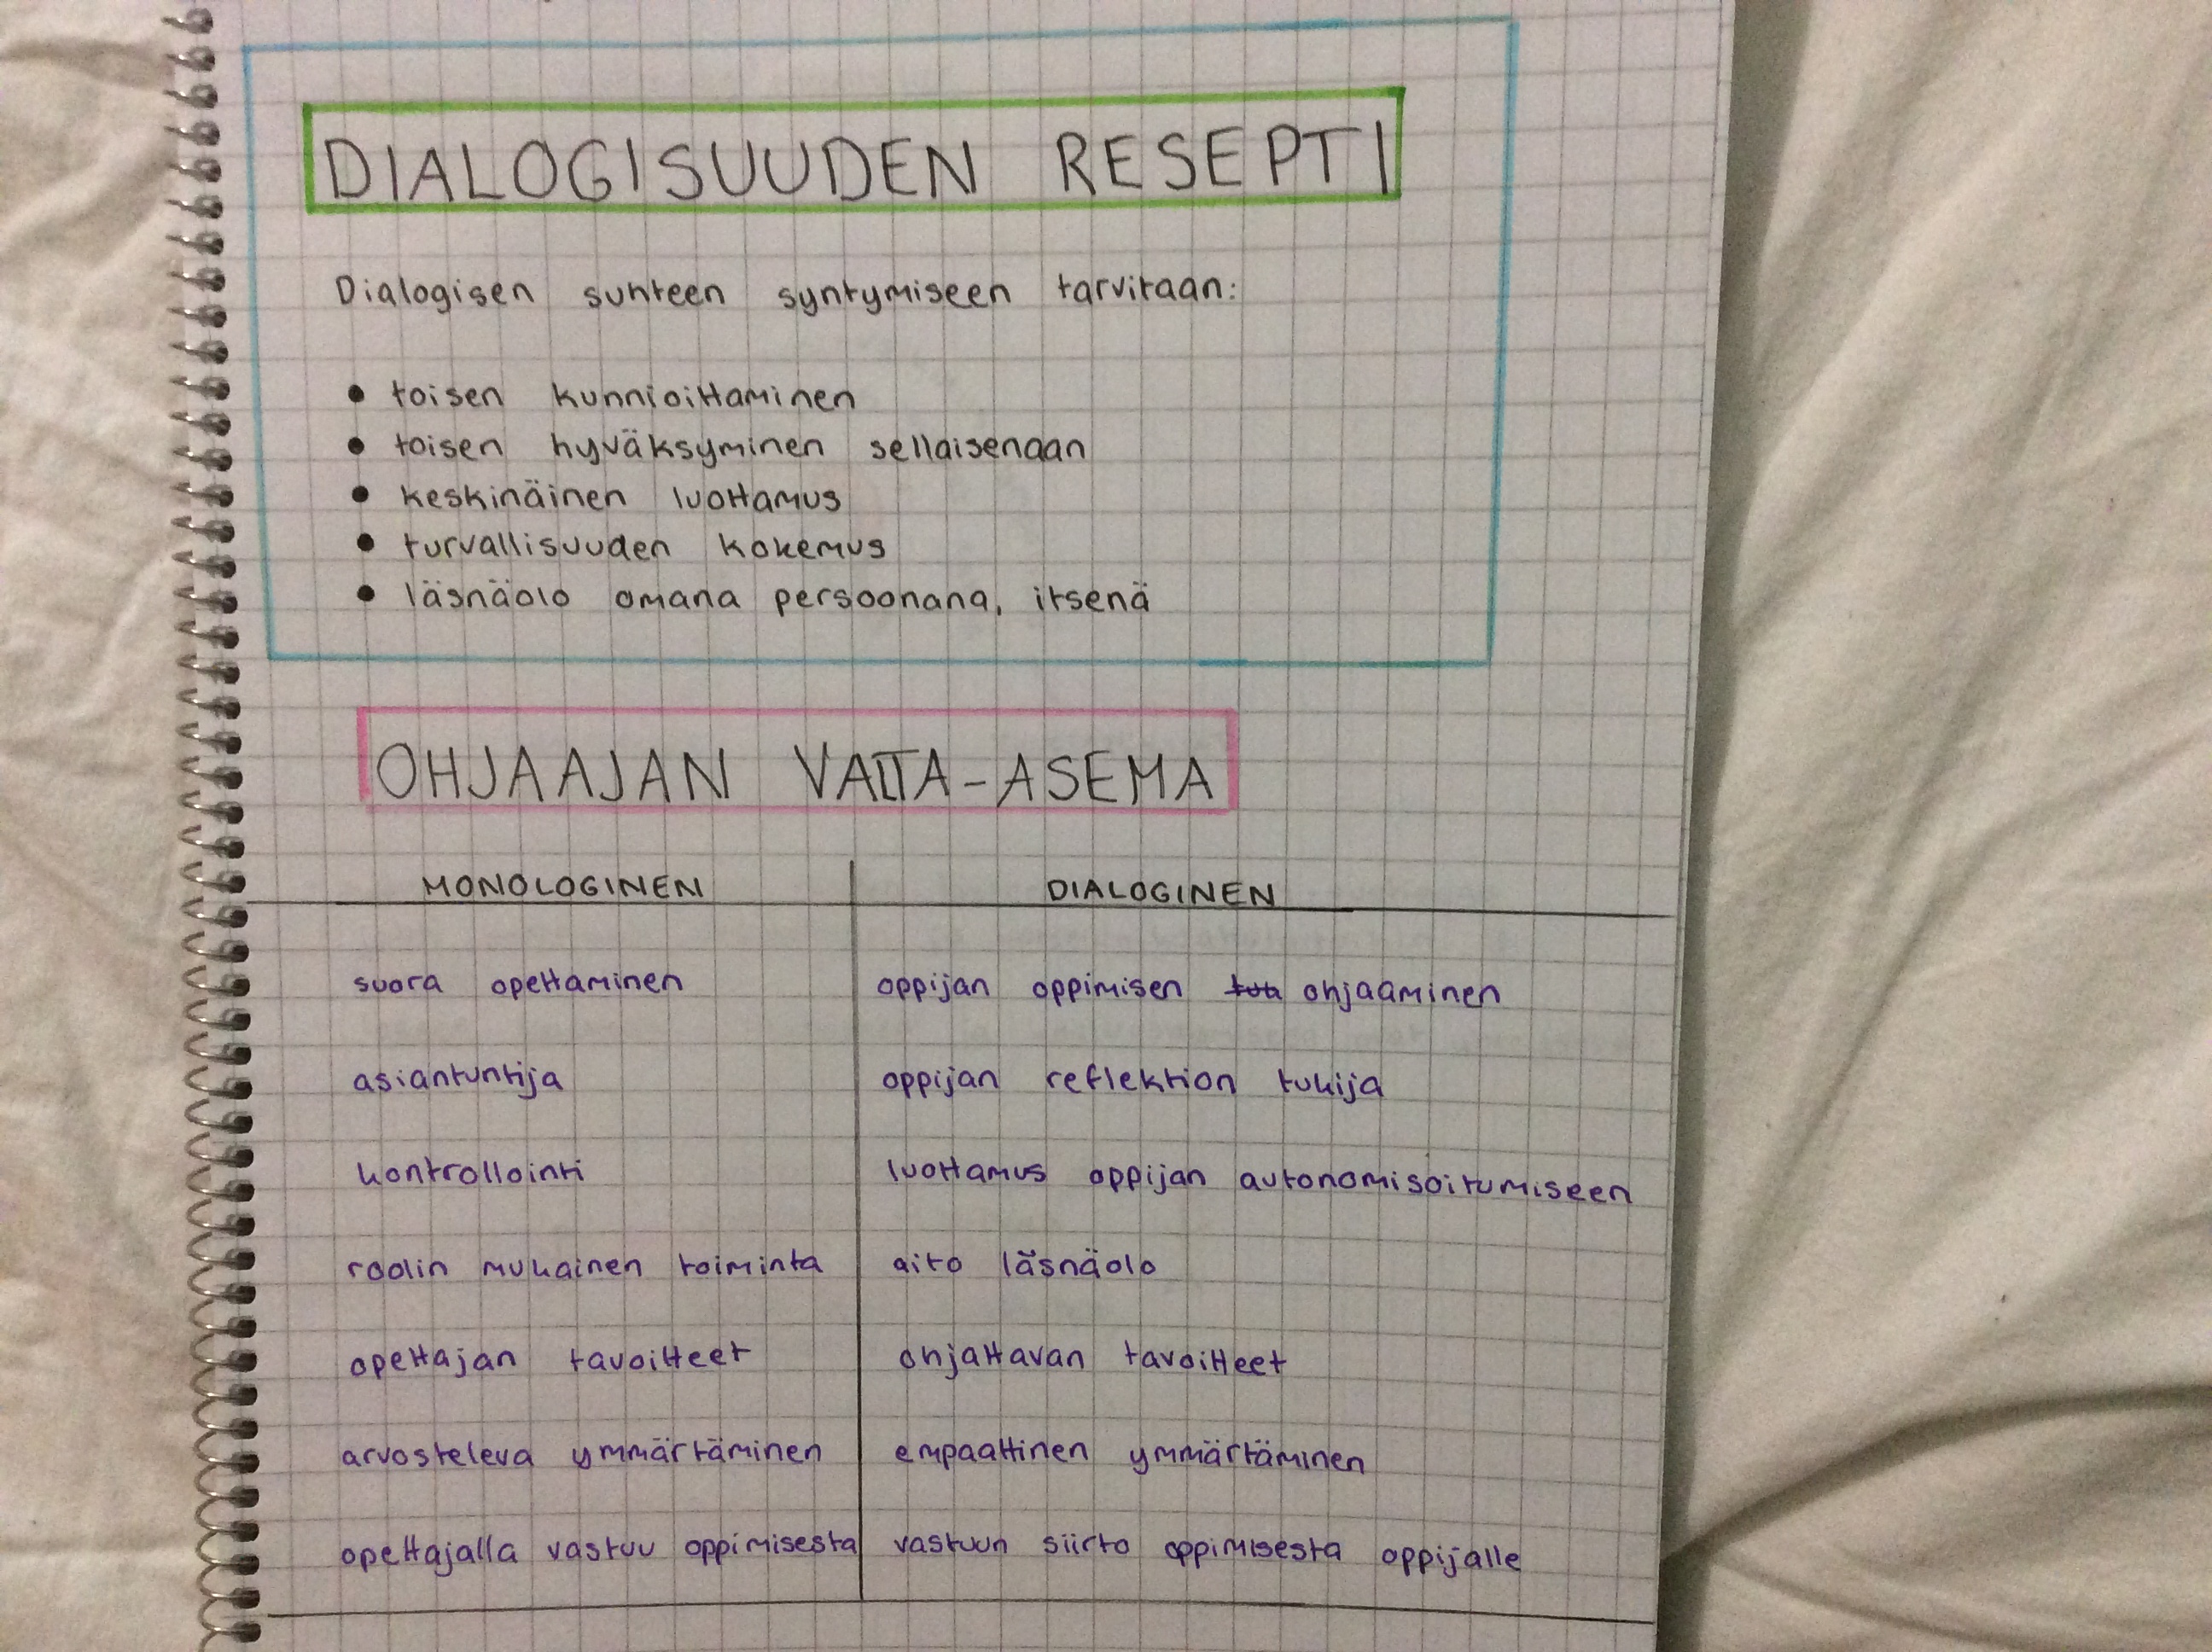 DIALOGISUUDEN RESEPTI
Dialogisen suhteen syntymiseen tarvitaan:
• toisen kunnioittaminen
• toisen hyväksyminen sellaisenaan
• keskinäinen luottamus
• turvallisuuden kokemus
• läsnäolo omana persoonana, itsenä
OHJAAJAN VALTA-ASEMA
MONOLOGINEN DIALOGINEN
suora opettaminen oppijan oppimisen ohjaaminen
asiantuntija oppijan reflektion tukija
kontrollointi luottamus oppijan autonomisoitumiseen
roolin mukainen toiminta aito läsnäolo
opettajan tavoitteet ohjattavan tavoitteet
arvosteleva ymmärtäminen empaattinen ymmärtäminen
opettajalla vastuu oppimisesta vastuun siirto oppimisesta oppijalle